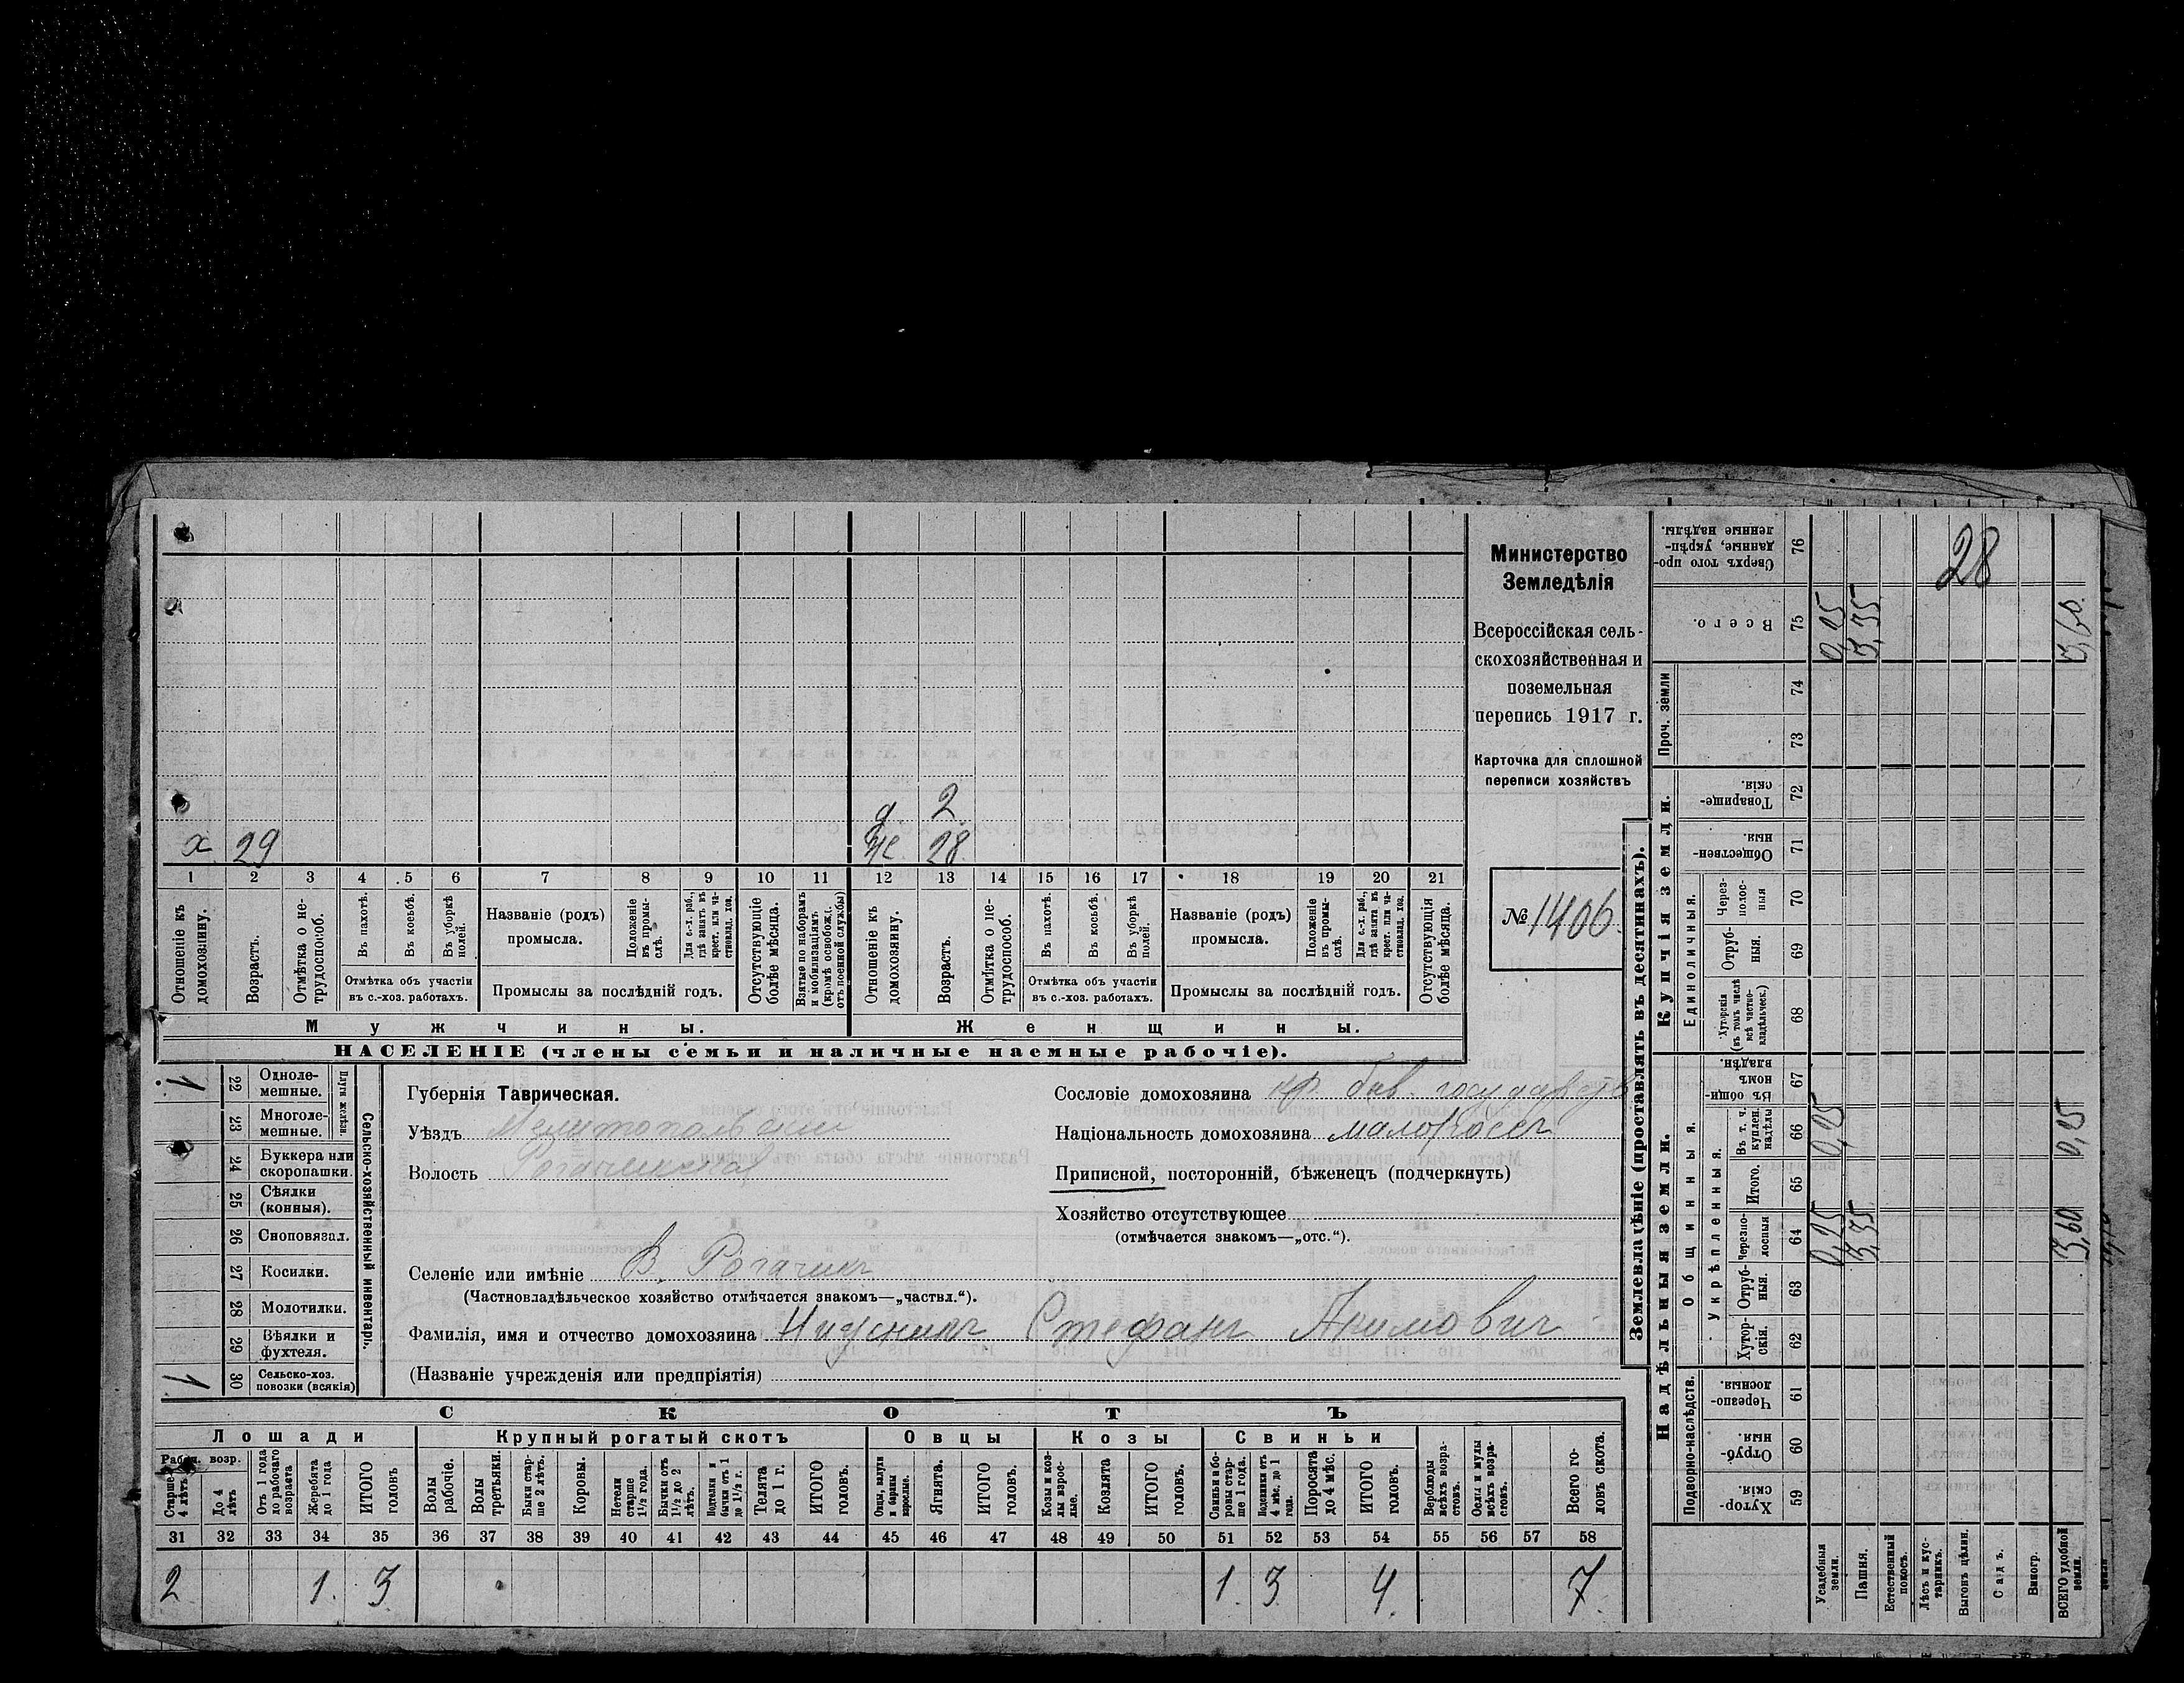 28
Министерство
Земледѣлія
Всероссійская сель-
скохозяйственная и
поземельная
перепись 1917 г.
Карточка для сплошной
переписи хозяйствъ
№ 1406.
д. 2
х 29 ж 28
1 2 3 4 5 6 7 8 9 10 11 12 13 14 15 16 17 18 19 20 21
Отношеніе къ домохозяину.
Возрастъ.
Отмѣтка о не-трудоспособ.
Въ пахотѣ.
Въ косьбѣ.
Въ уборкѣ полей.
Отмѣтка объ участіи
въ с.-хоз. работахъ.
Названіе (родъ)
промысла.
Положеніе въ промы-слѣ.
Для с.-х. раб., гдѣ занятъ въ крест. или ча-стновлад. хоз.
Промыслы за послѣдній годъ.
Отсутствующіе болѣе мѣсяца.
Взятые по наборамъ и мобилизаціямъ (кромѣ освобожд. отъ военной службы)
Отношеніе къ домохозяину.
Возрастъ.
Отмѣтка о не-трудоспособ.
Въ пахотѣ.
Въ косьбѣ.
Въ уборкѣ полей.
Отмѣтка объ участіи
въ с.-хоз. работахъ.
Названіе (родъ)
промысла.
Положеніе въ промы-слѣ.
Для с.-х. раб., гдѣ занята въ крест. или ча-стновлад. хоз.
Промыслы за послѣдній годъ.
Отсутствующія болѣе мѣсяца.
Мужчины. Женщины.
НАСЕЛЕНІЕ (члены семьи и наличные наемные рабочіе).
Сельско-хозяйственный инвентарь.
Плуги желѣзн.
1 22 Одноле-мешные.
23 Многоле-мешные.
24 Буккера или скоропашки.
25 Сѣялки (конныя).
26 Сноповязал.
27 Косилки.
28 Молотилки.
29 Вѣялки и фухтеля.
1 30 Сельско-хоз. повозки (всякія)
Губернія Таврическая.
Уѣздъ Мелитопольскій
Волость Рогачикская
Сословіе домохозяина кр. быв. государств
Національность домохозяина малороссъ
Приписной, посторонній, бѣженецъ (подчеркнуть)
Хозяйство отсутствующее
(отмѣчается знакомъ—„отс.“).
Селеніе или имѣніе В. Рогачикъ
(Частновладѣльческое хозяйство отмѣчается знакомъ—„частвл.“).
Фамилія, имя и отчество домохозяина Нижникъ Стефанъ Акимович
(Названіе учрежденія или предпріятія)
СКОТЪ
Лошади Крупный рогатый скотъ Овцы Козы Свиньи
Рабоч. возр.
Старше 4 лѣтъ
До 4 лѣтъ
Отъ 1 года до рабочаго возраста
Жеребята до 1 года
ИТОГО головъ
Волы рабочіе.
Волы третьяки.
Быки стар-ше 2 лѣтъ.
Коровы.
Нетели старше 1½ года.
Бычки отъ 1½ до 2 лѣтъ.
Подтелки и бычки отъ 1 до 1½ г.
Телята до 1 г.
ИТОГО головъ.
Овцы, валухи и бараны взрослые.
Ягнята.
ИТОГО головъ.
Козы и коз-лы взрос-лые.
Козлята
ИТОГО головъ.
Свиньи и бо-ровы стар-ше 1 года.
Подсвинки отъ 4 мѣс. до 1 года.
Поросята до 4 мѣс.
ИТОГО головъ.
Верблюды всѣхъ возра-стовъ.
Ослы и мулы всѣхъ возра-стовъ.
Всего го-ловъ скота.
31 32 33 34 35 36 37 38 39 40 41 42 43 44 45 46 47 48 49 50 51 52 53 54 55 56 57 58
2 1. 3 1. 3. 4. 7.
Землевладѣніе (проставлять въ десятинахъ).
Надѣльныя земли. Купчія земли. Проч. земли
Подворно-наслѣдств.
Общинныя.
Укрѣпленныя.
Единоличныя.
59 Хутор-скія.
60 Отруб-ныя.
61 Черезпо-лосныя.
62 Хутор-скія.
63 Отруб-ныя.
64 Черезпо-лосныя
65 Итого.
66 Въ т. ч. куплен. надѣлы
67 Въ общин-номъ владѣн.
68 Хуторскія (въ томъ числѣ всѣ частно-владѣльческ.)
69 Отруб-ныя.
70 Через-полос-ныя
71 Обществен-ныя
72 Товарище-скія.
73
74
75 Всего.
76 Сверхъ того про-данные, укрѣп-ленные надѣлы.
Усадебныя земли. 0,25 0,25 0,25
Пашня. 3,35 3,35
Естественный покосъ.
Лѣсъ и кус-тарникъ.
Выгонъ цѣлин.
Садъ.
Виногр.
ВСЕГО удобной земли. 3,60 0,25 3,60.